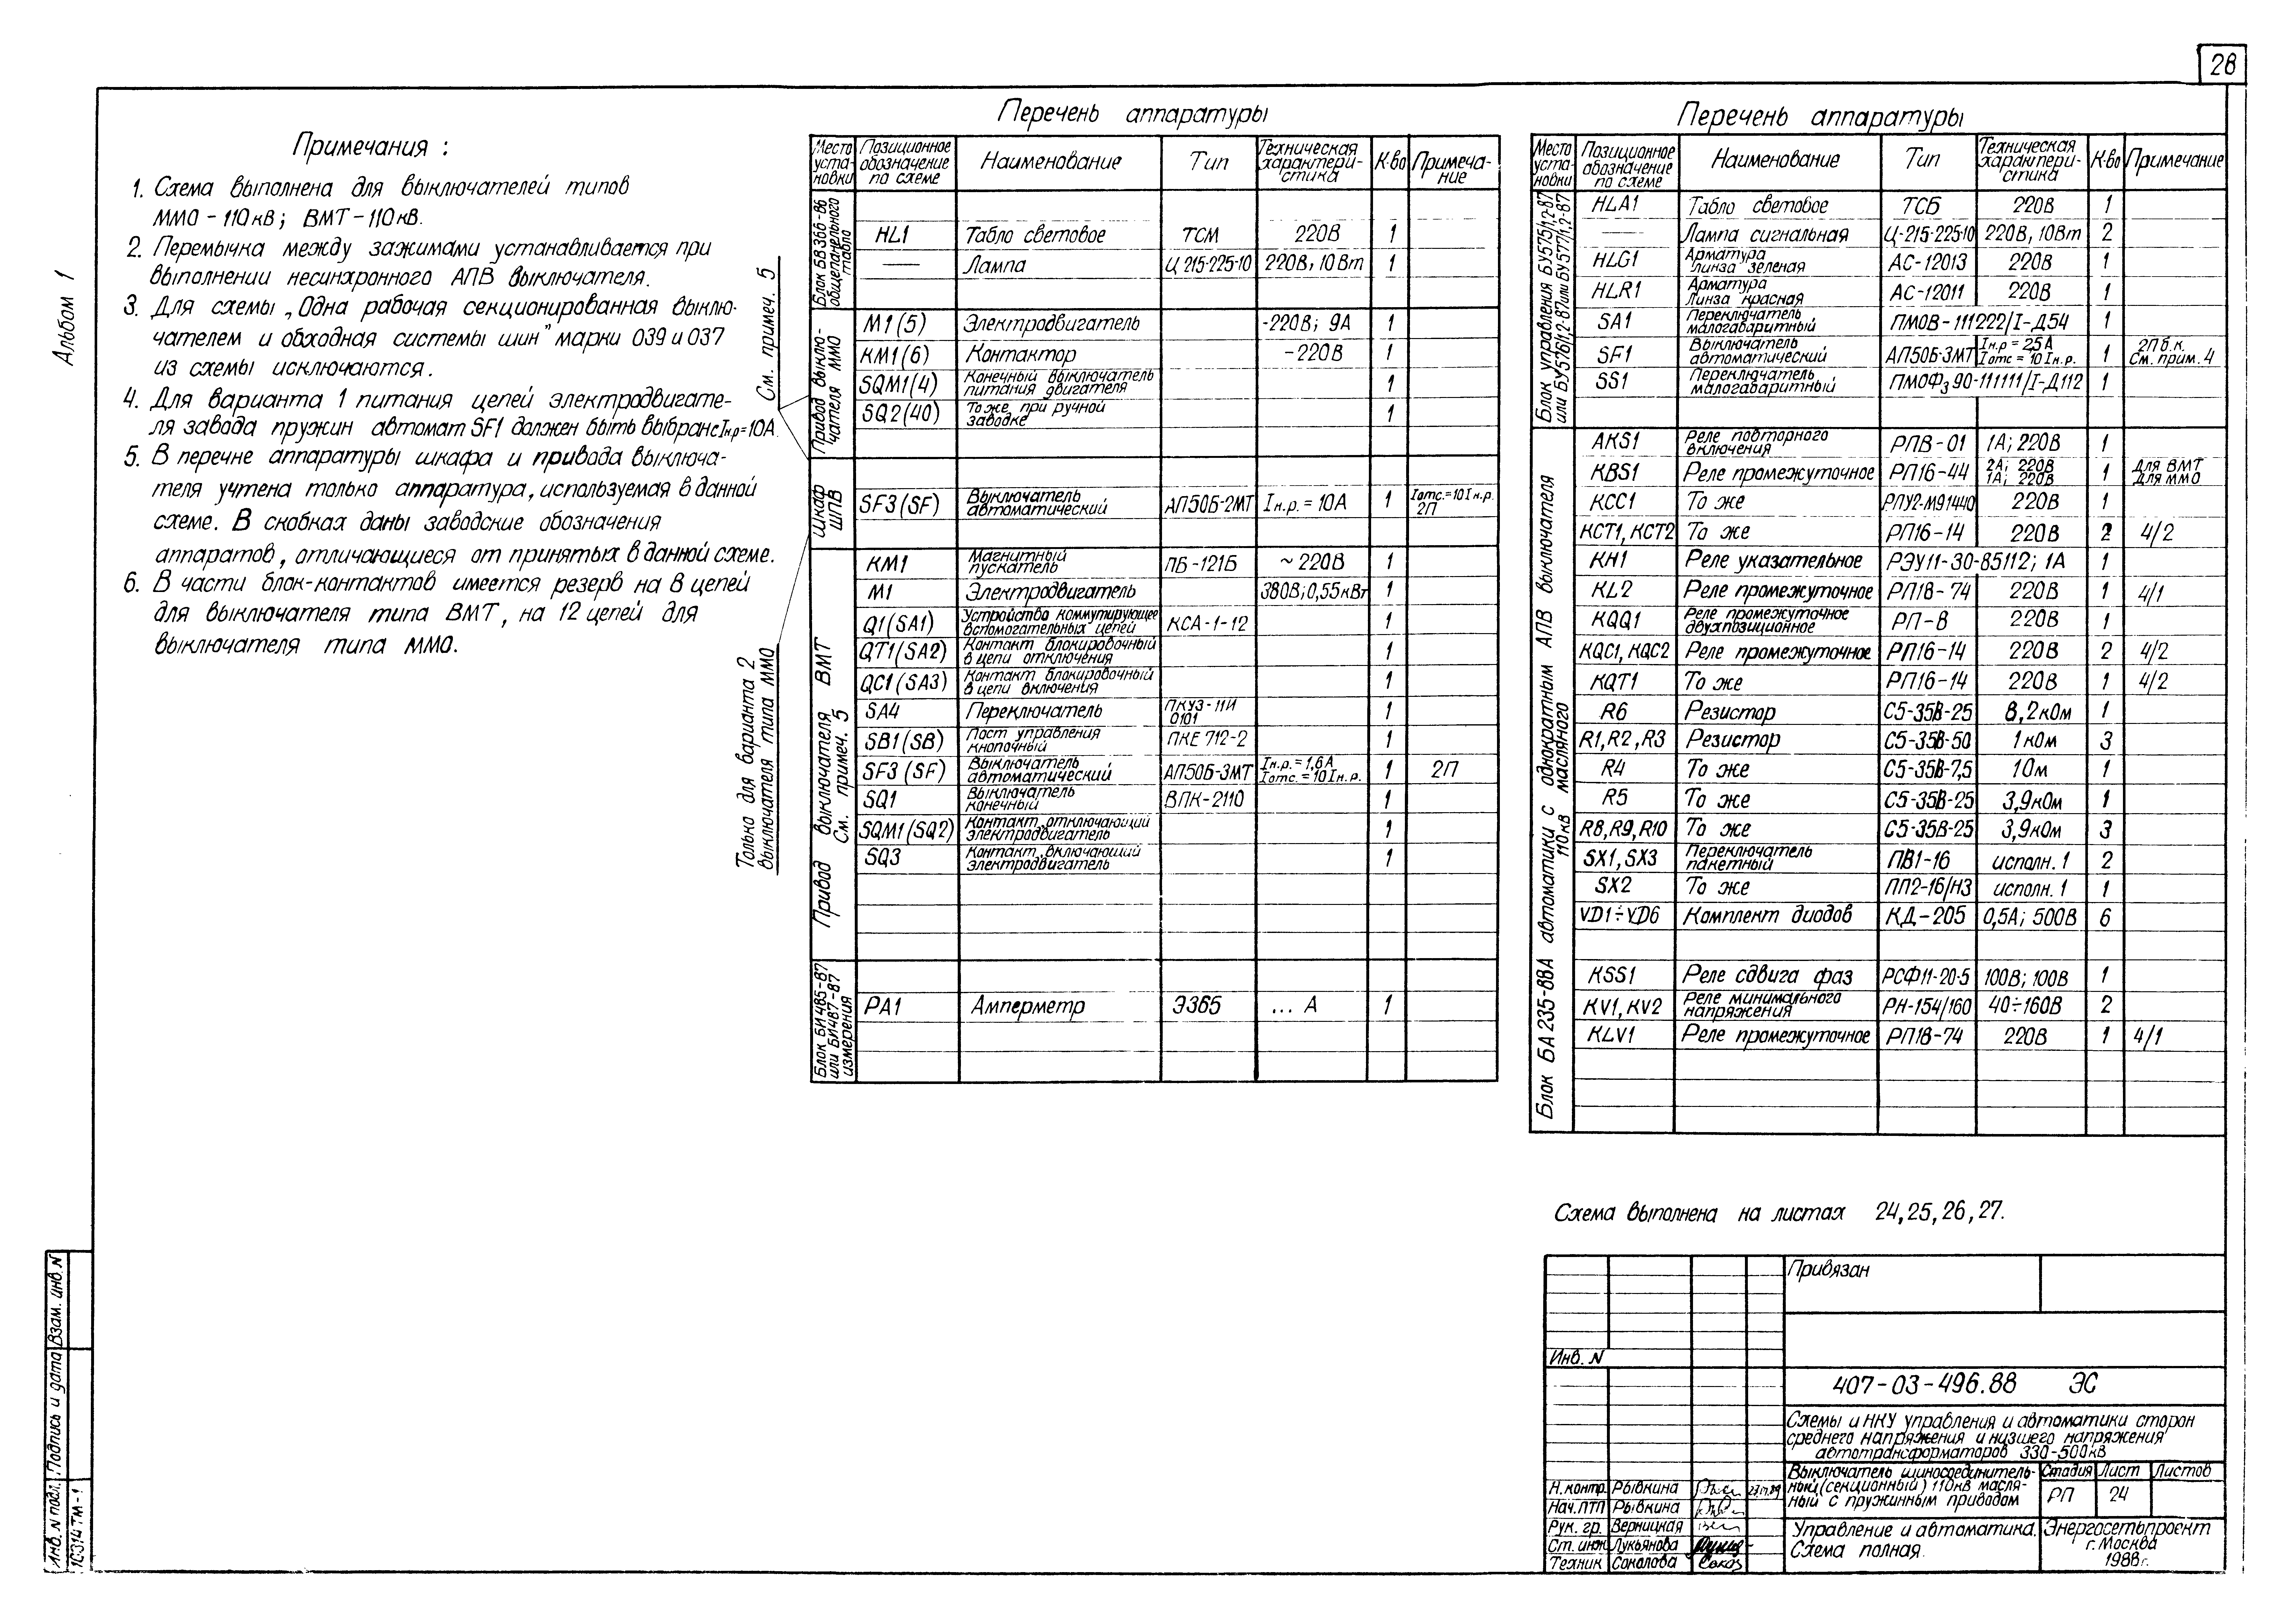 28
Альбом 1
Примечания :
1. Схема выполнена для выключателей типов
ММО - 110 кВ ; ВМТ - 110 кВ.
2. Перемычка между зажимами устанавливается при
выполнении несинхронного АПВ выключателя.
3. Для схемы „Одна рабочая секционированная выклю-
чателем и обходная системы шин" марки 039 и 037
из схемы исключаются.
4. Для варианта 1 питания цепей электродвигате-
ля завода пружин автомат SF1 должен быть выбран с Iн.р=10А.
5. В перечне аппаратуры шкафа и привода выключа-
теля учтена только аппаратура, используемая в данной
схеме. В скобках даны заводские обозначения
аппаратов, отличающиеся от принятых в данной схеме.
6. В части блок-контактов имеется резерв на 8 цепей
для выключателя типа ВМТ, на 12 цепей для
выключателя типа ММО.
См. примеч. 5
Только для варианта 2
выключателя типа ММО
Перечень аппаратуры
Место уста- новки | Позиционное обозначение по схеме | Наименование | Тип | Техническая характери- стика | К-во | Примеча- ние
Блок БВ366-86 общепанельного табло
HL1 Табло световое ТСМ 220В 1
— Лампа Ц 215-225-10 220В, 10Вт 1
Привод выклю- чателя ММО
M1(5) Электродвигатель -220В; 9А 1
KM1(6) Контактор -220В 1
SQM1(4) Конечный выключатель питания двигателя 1
SQ2(40) То же, при ручной заводке 1
Шкаф ШПВ
SF3(SF) Выключатель автоматический АП50Б-2МТ Iн.р. = 10А 1 Iотс.=10Iн.р. 2П
Привод выключателя ВМТ См. примеч. 5
KM1 Магнитный пускатель ПБ-121Б ~ 220В 1
M1 Электродвигатель 380В; 0,55кВт 1
Q1(SA1) Устройство коммутирующее вспомогательных цепей КСА-1-12 1
QT1(SA2) Контакт блокировочный в цепи отключения 1
QC1(SA3) Контакт блокировочный в цепи включения 1
SA4 Переключатель ПКУ3-11И 0101 1
SB1(SB) Пост управления кнопочный ПКЕ 712-2 1
SF3 (SF) Выключатель автоматический АП50Б-3МТ Iн.р.=1,6А Iотс.=10Iн.р. 1 2П
SQ1 Выключатель конечный ВПК-2110 1
SQM1(SQ2) Контакт, отключающий электродвигатель 1
SQ3 Контакт, включающий электродвигатель 1
Блок БИ485-87 или БИ487-87 измерения
PA1 Амперметр Э365 ... А 1
Перечень аппаратуры
Место уста- новки | Позиционное обозначение по схеме | Наименование | Тип | Техническая характери- стика | К-во | Примечание
Блок управления БУ575/1,2-87 или БУ576/1,2-87 или БУ577/1,2-87
HLA1 Табло световое ТСБ 220В 1
— Лампа сигнальная Ц-215-225-10 220В, 10Вт 2
HLG1 Арматура линза зеленая АС-12013 220В 1
HLR1 Арматура линза красная АС-12011 220В 1
SA1 Переключатель малогабаритный ПМОВ-111222/I-Д54 1
SF1 Выключатель автоматический АП50Б-3МТ Iн.р = 2,5А Iотс = 10 Iн.р. 1 2П б.к. См. прим. 4
SS1 Переключатель малогабаритный ПМОФ₃90-111111/I-Д112 1
Блок БА 235-88А автоматики с однократным АПВ выключателя 110кВ масляного
AKS1 Реле повторного включения РПВ-01 1А; 220В 1
KBS1 Реле промежуточное РП16-44 2А; 220В 1А; 220В 1 Для ВМТ Для ММО
KCC1 То же РПУ2-М91440 220В 1
KCT1, KCT2 То же РП16-14 220В 2 4/2
KH1 Реле указательное РЭУ11-30-85112; 1А 1
KL2 Реле промежуточное РП18-74 220В 1 4/1
KQQ1 Реле промежуточное двухпозиционное РП-8 220В 1
KQC1, KQC2 Реле промежуточное РП16-14 220В 2 4/2
KQT1 То же РП16-14 220В 1 4/2
R6 Резистор С5-35В-25 8,2кОм 1
R1, R2, R3 Резистор С5-35В-50 1кОм 3
R4 То же С5-35В-7,5 1Ом 1
R5 То же С5-35В-25 3,9кОм 1
R8, R9, R10 То же С5-35В-25 3,9кОм 3
SX1, SX3 Переключатель пакетный ПВ1-16 исполн. 1 2
SX2 То же ПП2-16/Н3 исполн. 1 1
VD1÷VD6 Комплект диодов КД-205 0,5А; 500В 6
KSS1 Реле сдвига фаз РСФ11-20-5 100В; 100В 1
KV1, KV2 Реле минимального напряжения РН-154/160 40÷160В 2
KLV1 Реле промежуточное РП18-74 220В 1 4/1
Схема выполнена на листах 24, 25, 26, 27.
Привязан
Инв. N
407-03-496.88 ЭС
Схемы и НКУ управления и автоматики сторон
среднего напряжения и низшего напряжения
автотрансформаторов 330-500кВ
Н.контр. Рывкина
Нач.ПТП Рывкина
Рук. гр. Верницкая
Ст. инж Лукьянова
Техник Соколова
Выключатель шиносоединитель-
ный (секционный) 110кВ масля-
ный с пружинным приводом
Стадия Лист Листов
РП 24
Управление и автоматика.
Схема полная.
Энергосетьпроект
г. Москва
1988г.
Инв. N подл. Подпись и дата Взам. инв. N
10314тм-1